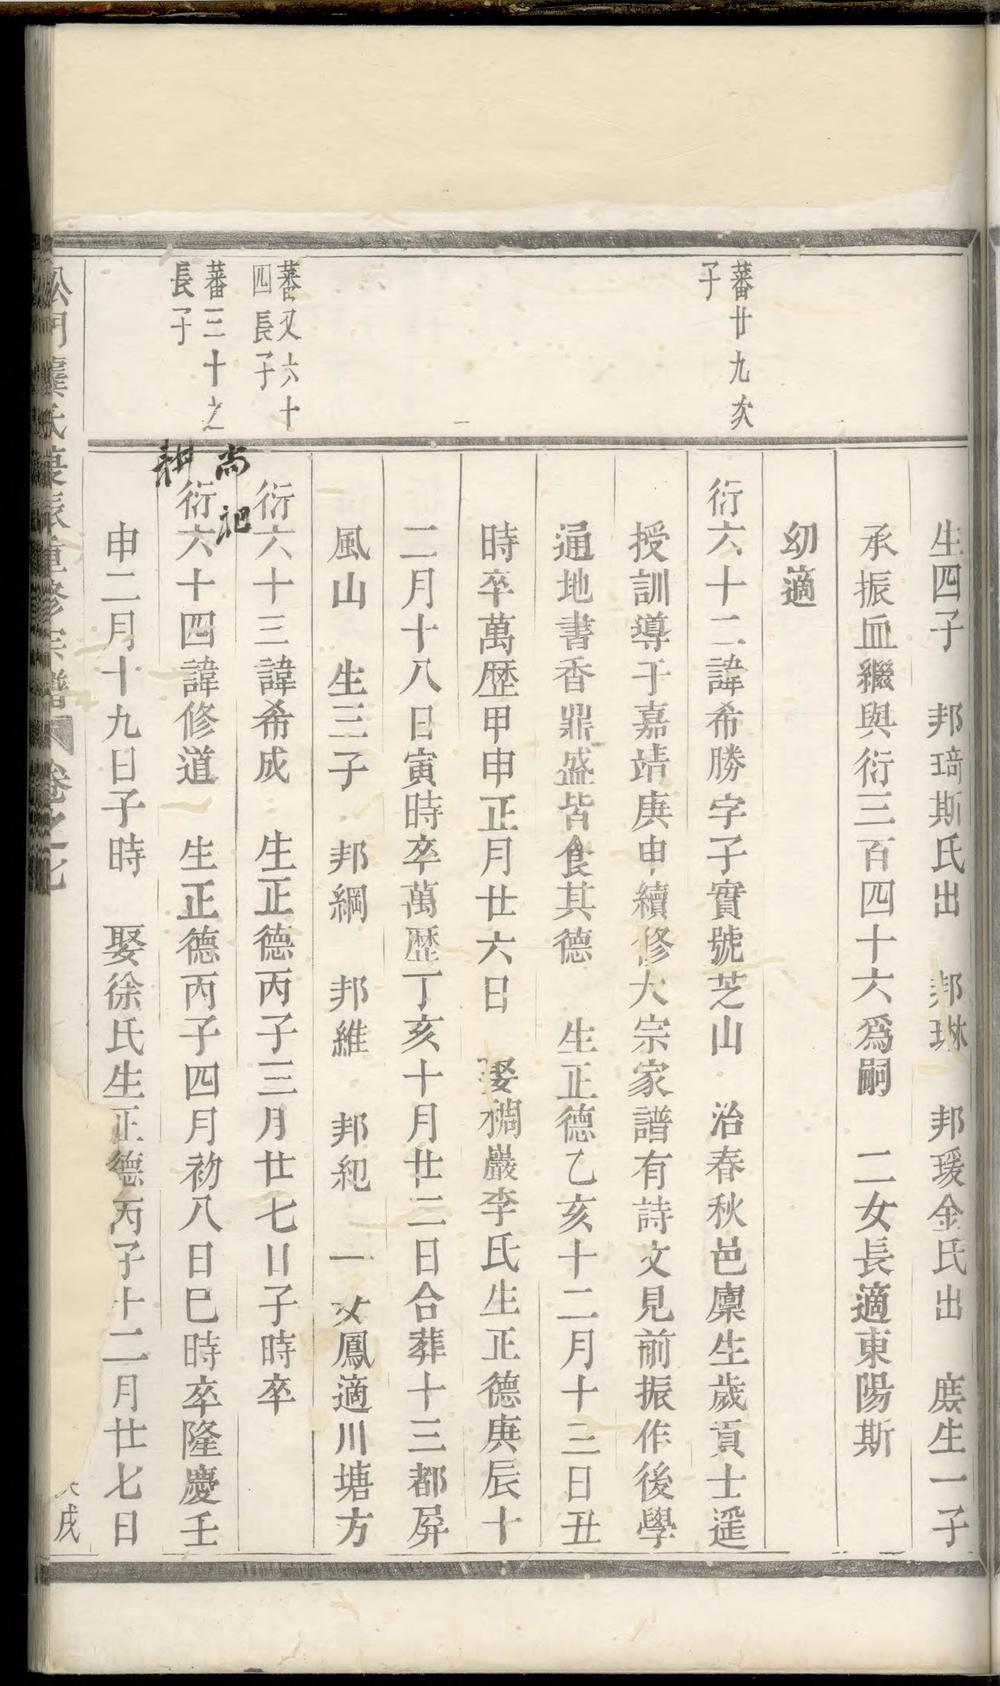 生四子　邦琦斯氏出　邦琳　邦瑗金氏出　庶生一子
承振血繼與衍三百四十六爲嗣　二女長適東陽斯
幼適
蕃廿九次
子
衍六十二諱希勝字子實號芝山　治春秋邑廩生歲貢士遥
授訓導于嘉靖庚申續修大宗家譜有詩文見前振作後學
通地書香鼎盛皆食其德　生正德乙亥十二月十三日丑
時卒萬歷甲申正月廿六日　娶稠巖李氏生正德庚辰十
二月十八日寅時卒萬歷丁亥十月廿二日合葬十三都屏
風山　生三子　邦綱　邦維　邦紀　一女鳳適川塘方
蕃又六十
四長子
衍六十三諱希成　生正德丙子三月廿七日子時卒
尚祀
蕃三十之
長子
耕
衍六十四諱修道　生正德丙子四月初八日巳時卒隆慶壬
申二月十九日子時　娶徐氏生正德丙子十二月廿七日
松門龔氏重修宗譜　卷之七
戌